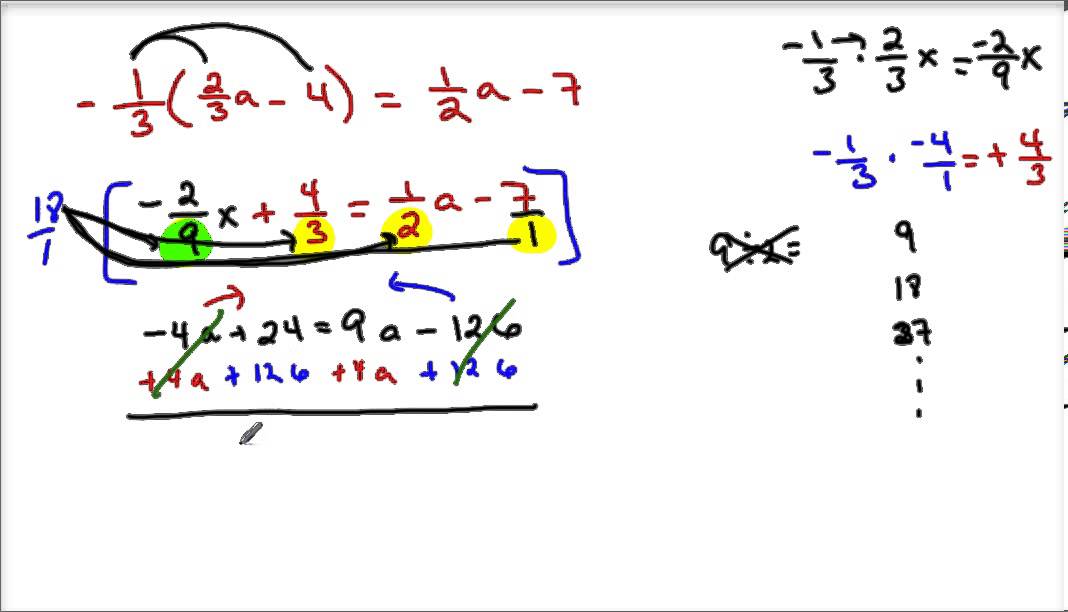 -1/3(2/3a - 4) = 1/2a - 7
18/1[-2/9x + 4/3 = 1/2a - 7/1]
-4a + 24 = 9a - 126
+4a + 126 +4a + 126
-1/3 · 2/3x = -2/9x
-1/3 · -4/1 = + 4/3
9
18